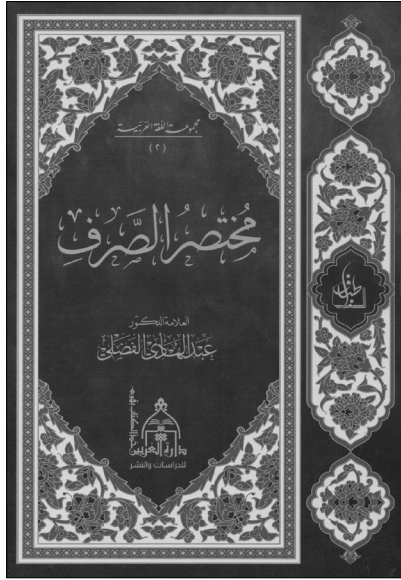 مجموعة اللغة العربية
(٢)
مُختصرُ الصّرفِ
العلامة الدكتور
عبد الهادي الفضلي
للدراسات والنشر